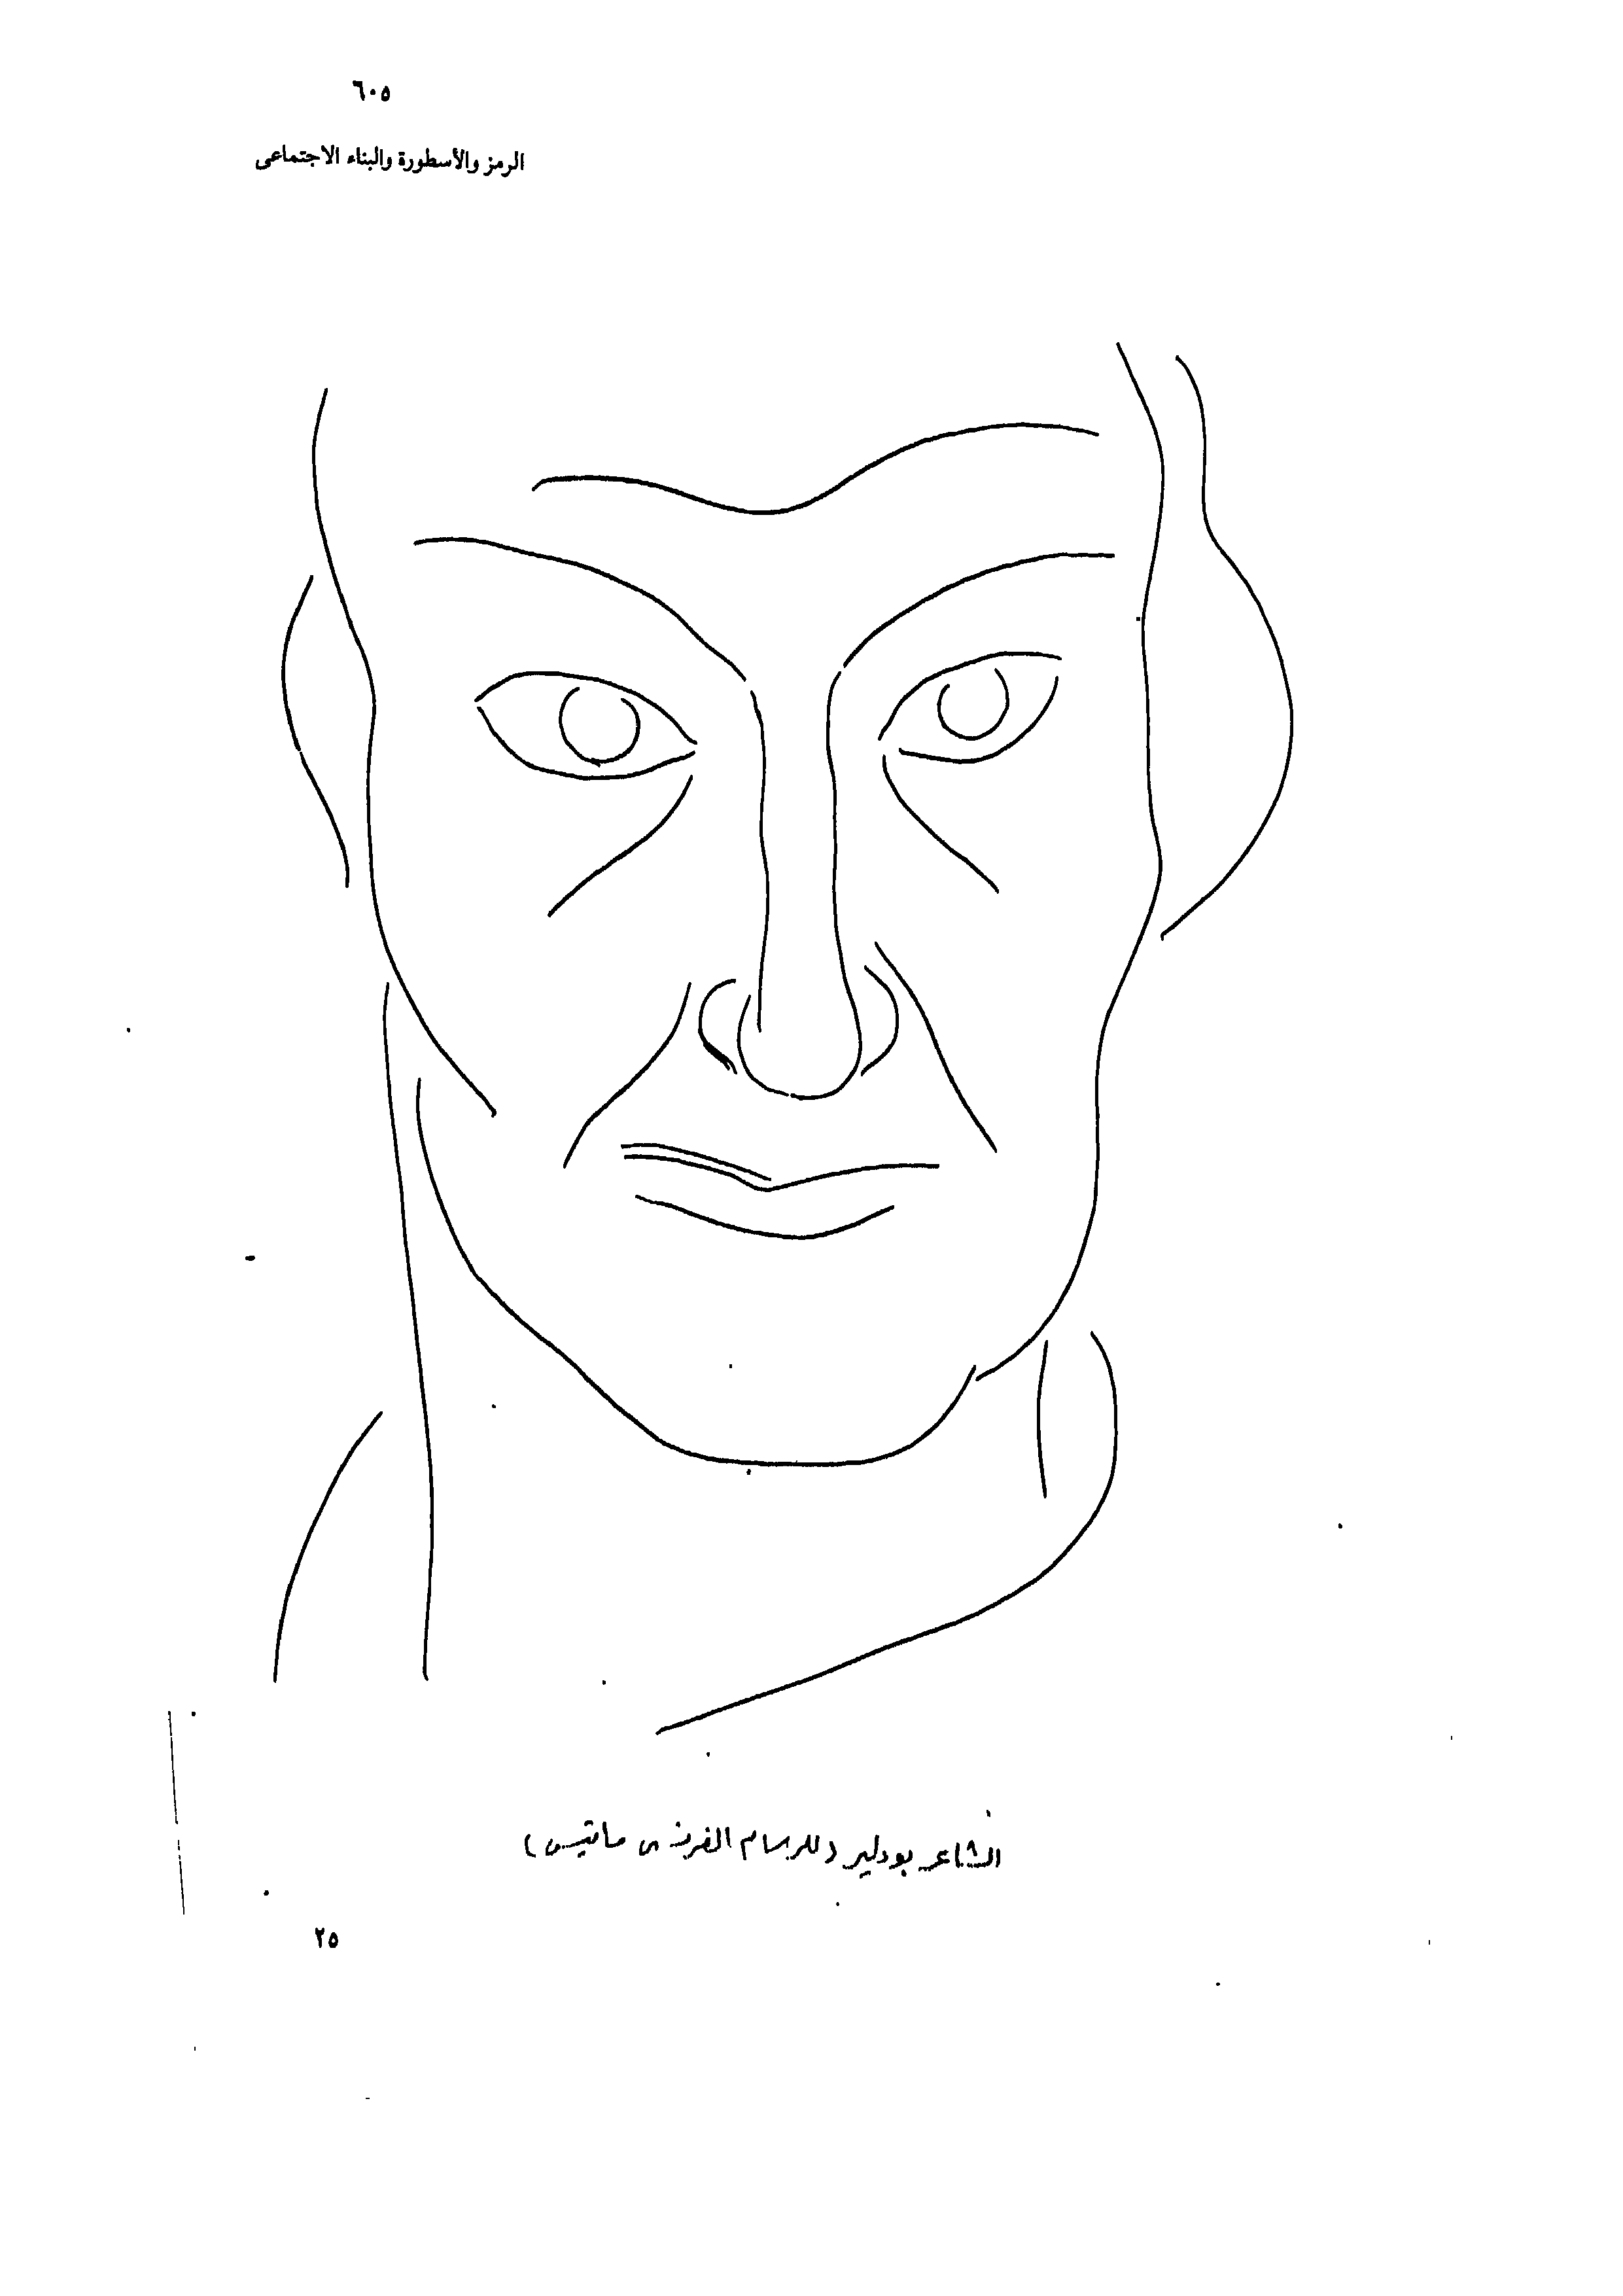 ٦٠٥
الرمز والأسطورة والبناء الاجتماعى
الشاعر بودلير (للرسام الفرنسى ماتيس)
٢٥